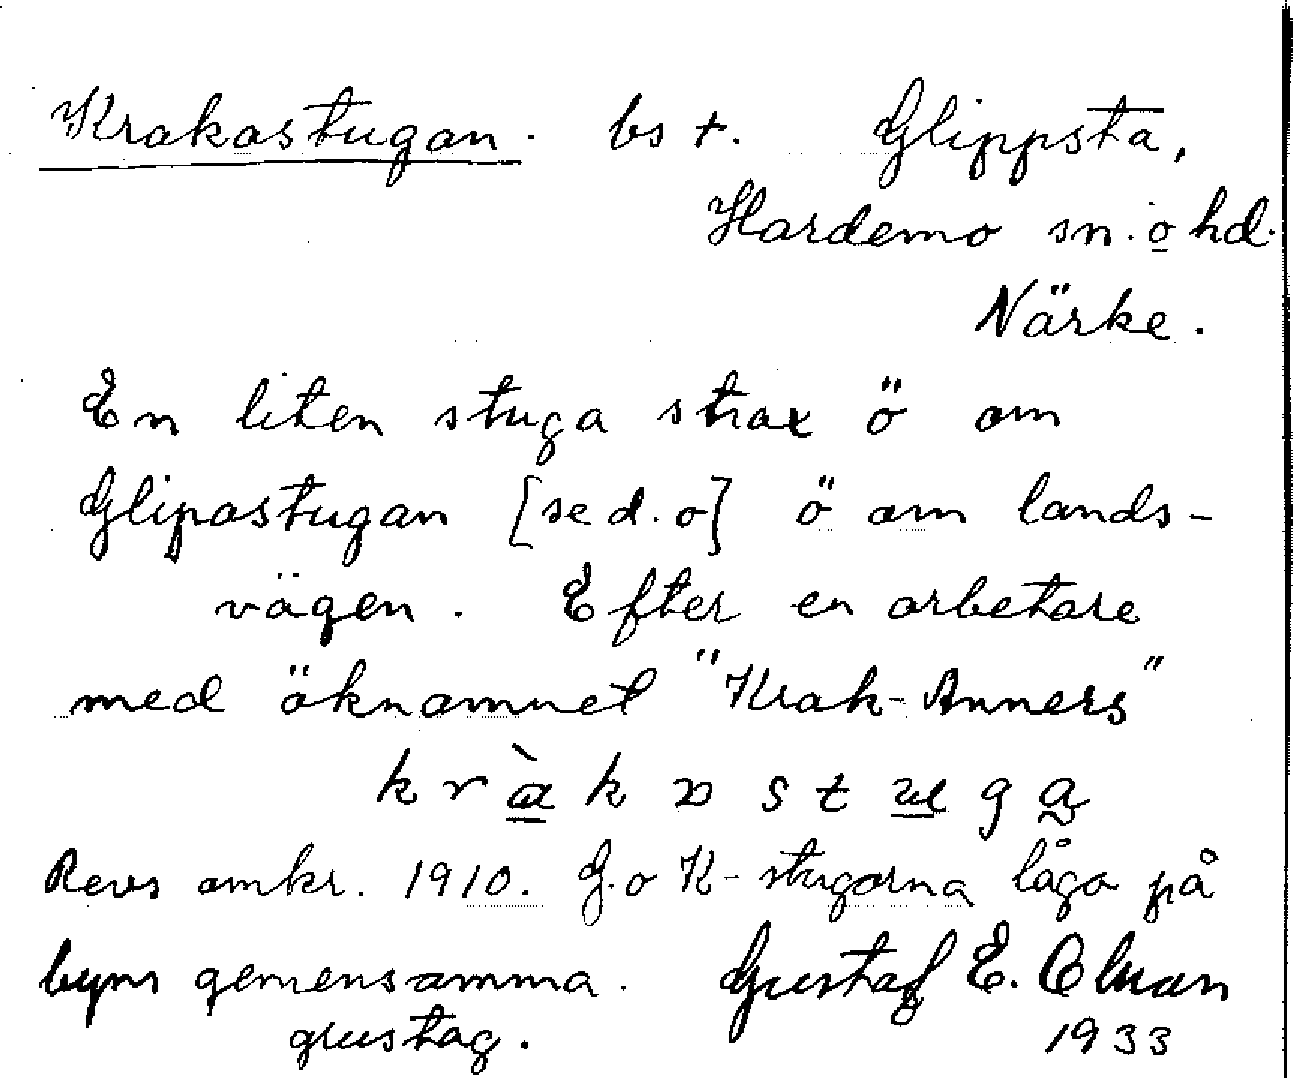 Krakastugan. bs +. Glippsta,
Hardemo sn. o hd.
Närke.
En liten stuga strax ö om
Glipastugan [se d. o] ö om lands-
vägen. Efter en arbetare
med öknamnet "Krak-Anners"
Revs omkr. 1910. G. o K-stugorna låga på
byns gemensamma. Gustaf E.
grustag. 1933